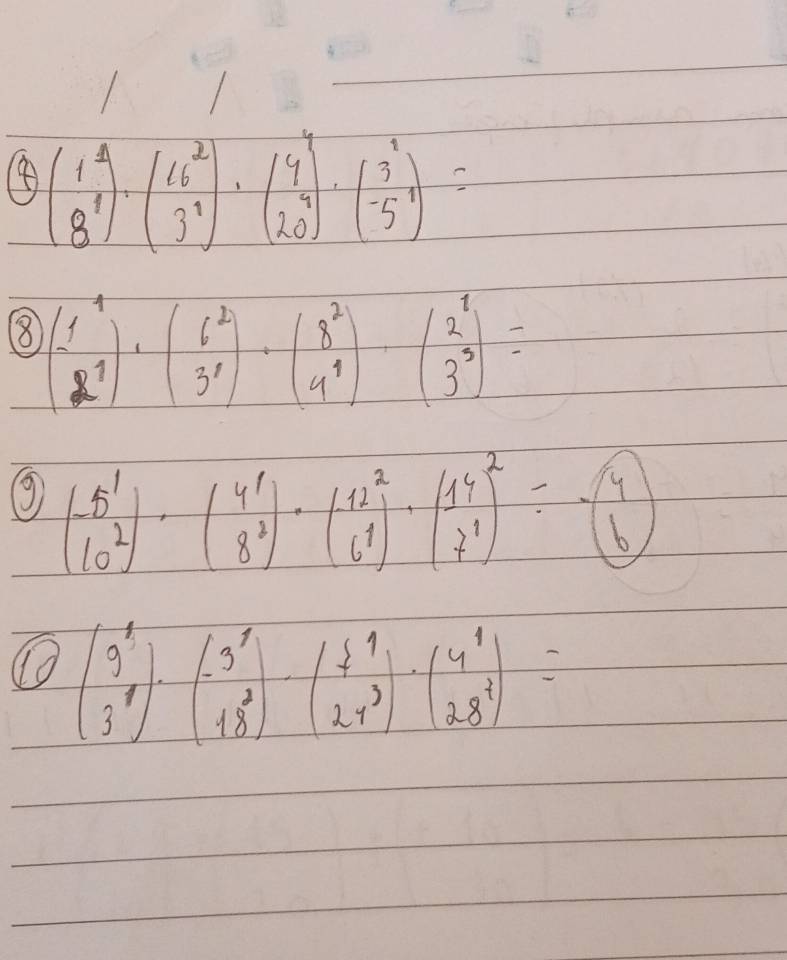 / /
⑦ (1¹/8¹) · (16²/3¹) · (4⁴/20⁴) · (3¹/-5¹) =
⑧ (-1¹/2¹) · (6²/3¹) · (8²/4¹) · (2¹/3³) =
⑨ (-5¹/10²) · (4¹/8²) · (-12²/6¹) · (14²/7¹) = -(4/6)
⑩ (9¹/3¹) · (-3¹/18²) · (7¹/24³) · (4¹/28⁷) =